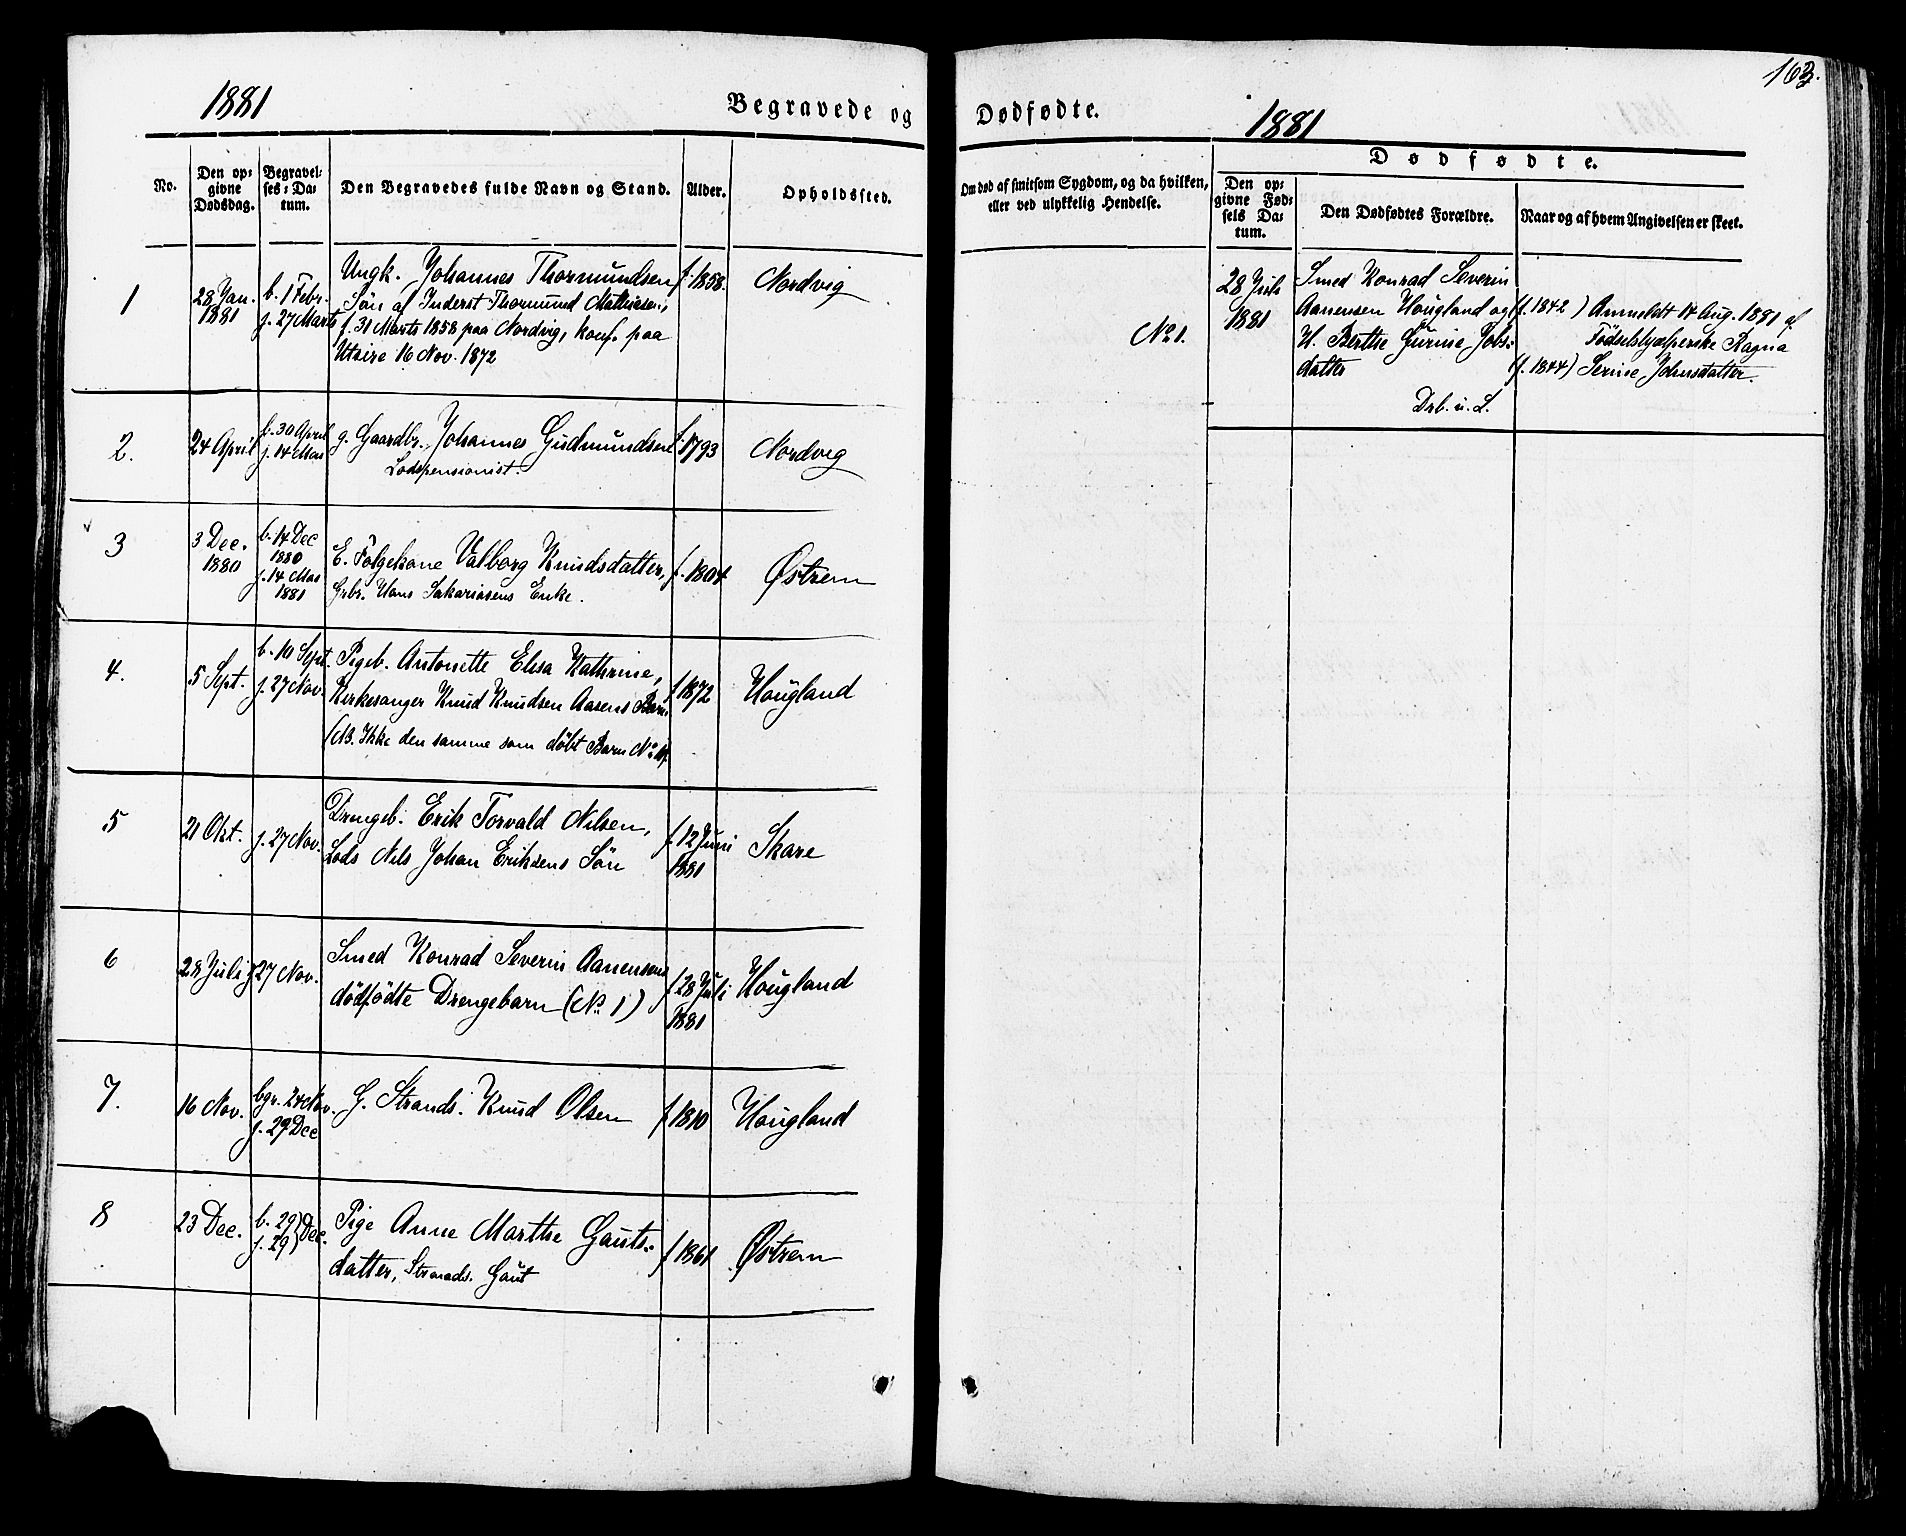 1881
Begravede og
No.
Den op-
givne
Dødsdag.
Begravel-
ses-Da-
tum.
Den Begravedes fulde Navn og Stand.
Alder.
Opholdssted.
1
28 Jan.
1881
b. 1 Febr.
j. 27 Marts
Ungk. Johannes Thormundsen
Søn af Inderst Thormund Mathiesen,
f. 31 Marts 1858 paa Nordvig, konf. paa
Utsire 16 Nov. 1872
f. 1858.
Nordvig
2.
24 April
b. 30 April
j. 14 Mai
g. Gaardbr. Johannes Gudmundsen
Lodspensionist.
f. 1793
Nordvig
3
3 Dec.
1880
b. 14 Dec
1880
j. 14 Mai
1881
E. Følgekone Valborg Knudsdatter,
Grbr. Hans Sakariasens Enke.
f. 1804
Østrem
4.
5 Sept.
b. 10 Sept.
j. 27 Nov.
Pigeb. Antonette Elisa Kathrine,
Kirkesanger Knud Knudsen Aasens Barn
(NB. Ikke den samme som døbt Barn No
f 1872
Hougland
5
21 Okt.
j. 27 Nov.
Drengeb. Erik Torvald Nilsen,
Lods Nils Johan Eriksens Søn
f 12 Juni
1881
Skare
6
28 Juli
j 27 Nov.
Smed Konrad Severin Aanensens
dødfødte Drengebarn (No 1)
f 28 Juli
1881
Hougland
7.
16 Nov.
bgr. 24 Nov.
j. 29 Dec
G. Strands. Knud Olsen
f 1810
Hougland
8
23 Dec.
b. 29) Dec.
j. 29)
Pige Anne Marthe Gauts-
datter, Strands. Gaut
f 1861
Østrem
163.
Dødfødte.
1881
Om død af smitsom Sygdom, og da hvilken,
eller ved ulykkelig Hendelse.
Dødfødte.
Den op-
givne Fød-
sels Da-
tum.
Den Dødfødtes Forældre.
Naar og af hvem Angivelsen er skeet.
No 1.
28 Juli
1881
Smed Konrad Severin
Aanensen Hougland og
H. Berthe Gurine Jobs-
datter
Drb. u. L.
(f. 1842) Anmeldt 14 Aug. 1881 af
Fødselshjælperske Ragna
(f. 1844) Serine Johnsdatter.